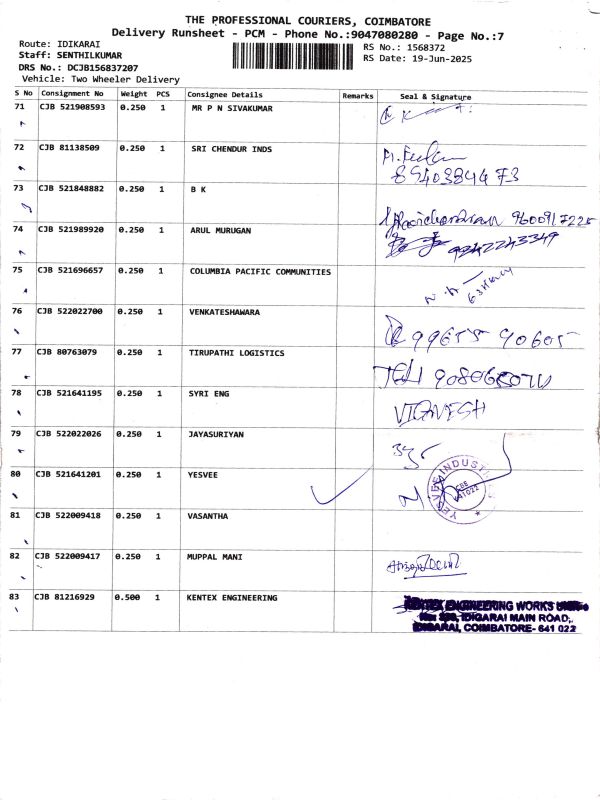 THE PROFESSIONAL COURIERS, COIMBATORE
Delivery Runsheet - PCM - Phone No.:9047080280 - Page No.:7
Route: IDIKARAI
RS No.: 1568372
Staff: SENTHILKUMAR
RS Date: 19-Jun-2025
DRS No.: DCJB156837207
Vehicle: Two Wheeler Delivery
S No Consignment No Weight PCS Consignee Details Remarks Seal & Signature
71 CJB 521908593 0.250 1 MR P N SIVAKUMAR
72 CJB 81138509 0.250 1 SRI CHENDUR INDS
8940384473
73 CJB 521848882 0.250 1 B K
9600917225
74 CJB 521989920 0.250 1 ARUL MURUGAN
9342243349
75 CJB 521696657 0.250 1 COLUMBIA PACIFIC COMMUNITIES
76 CJB 522022700 0.250 1 VENKATESHAWARA
99655 90605
77 CJB 80763079 0.250 1 TIRUPATHI LOGISTICS
78 CJB 521641195 0.250 1 SYRI ENG
VIGNESH
79 CJB 522022026 0.250 1 JAYASURIYAN
80 CJB 521641201 0.250 1 YESVEE
YESVEE INDUSTRIES
81 CJB 522009418 0.250 1 VASANTHA
82 CJB 522009417 0.250 1 MUPPAL MANI
83 CJB 81216929 0.500 1 KENTEX ENGINEERING
KENTEX ENGINEERING WORKS
IDIGARAI MAIN ROAD,
IDIGARAI, COIMBATORE- 641 022